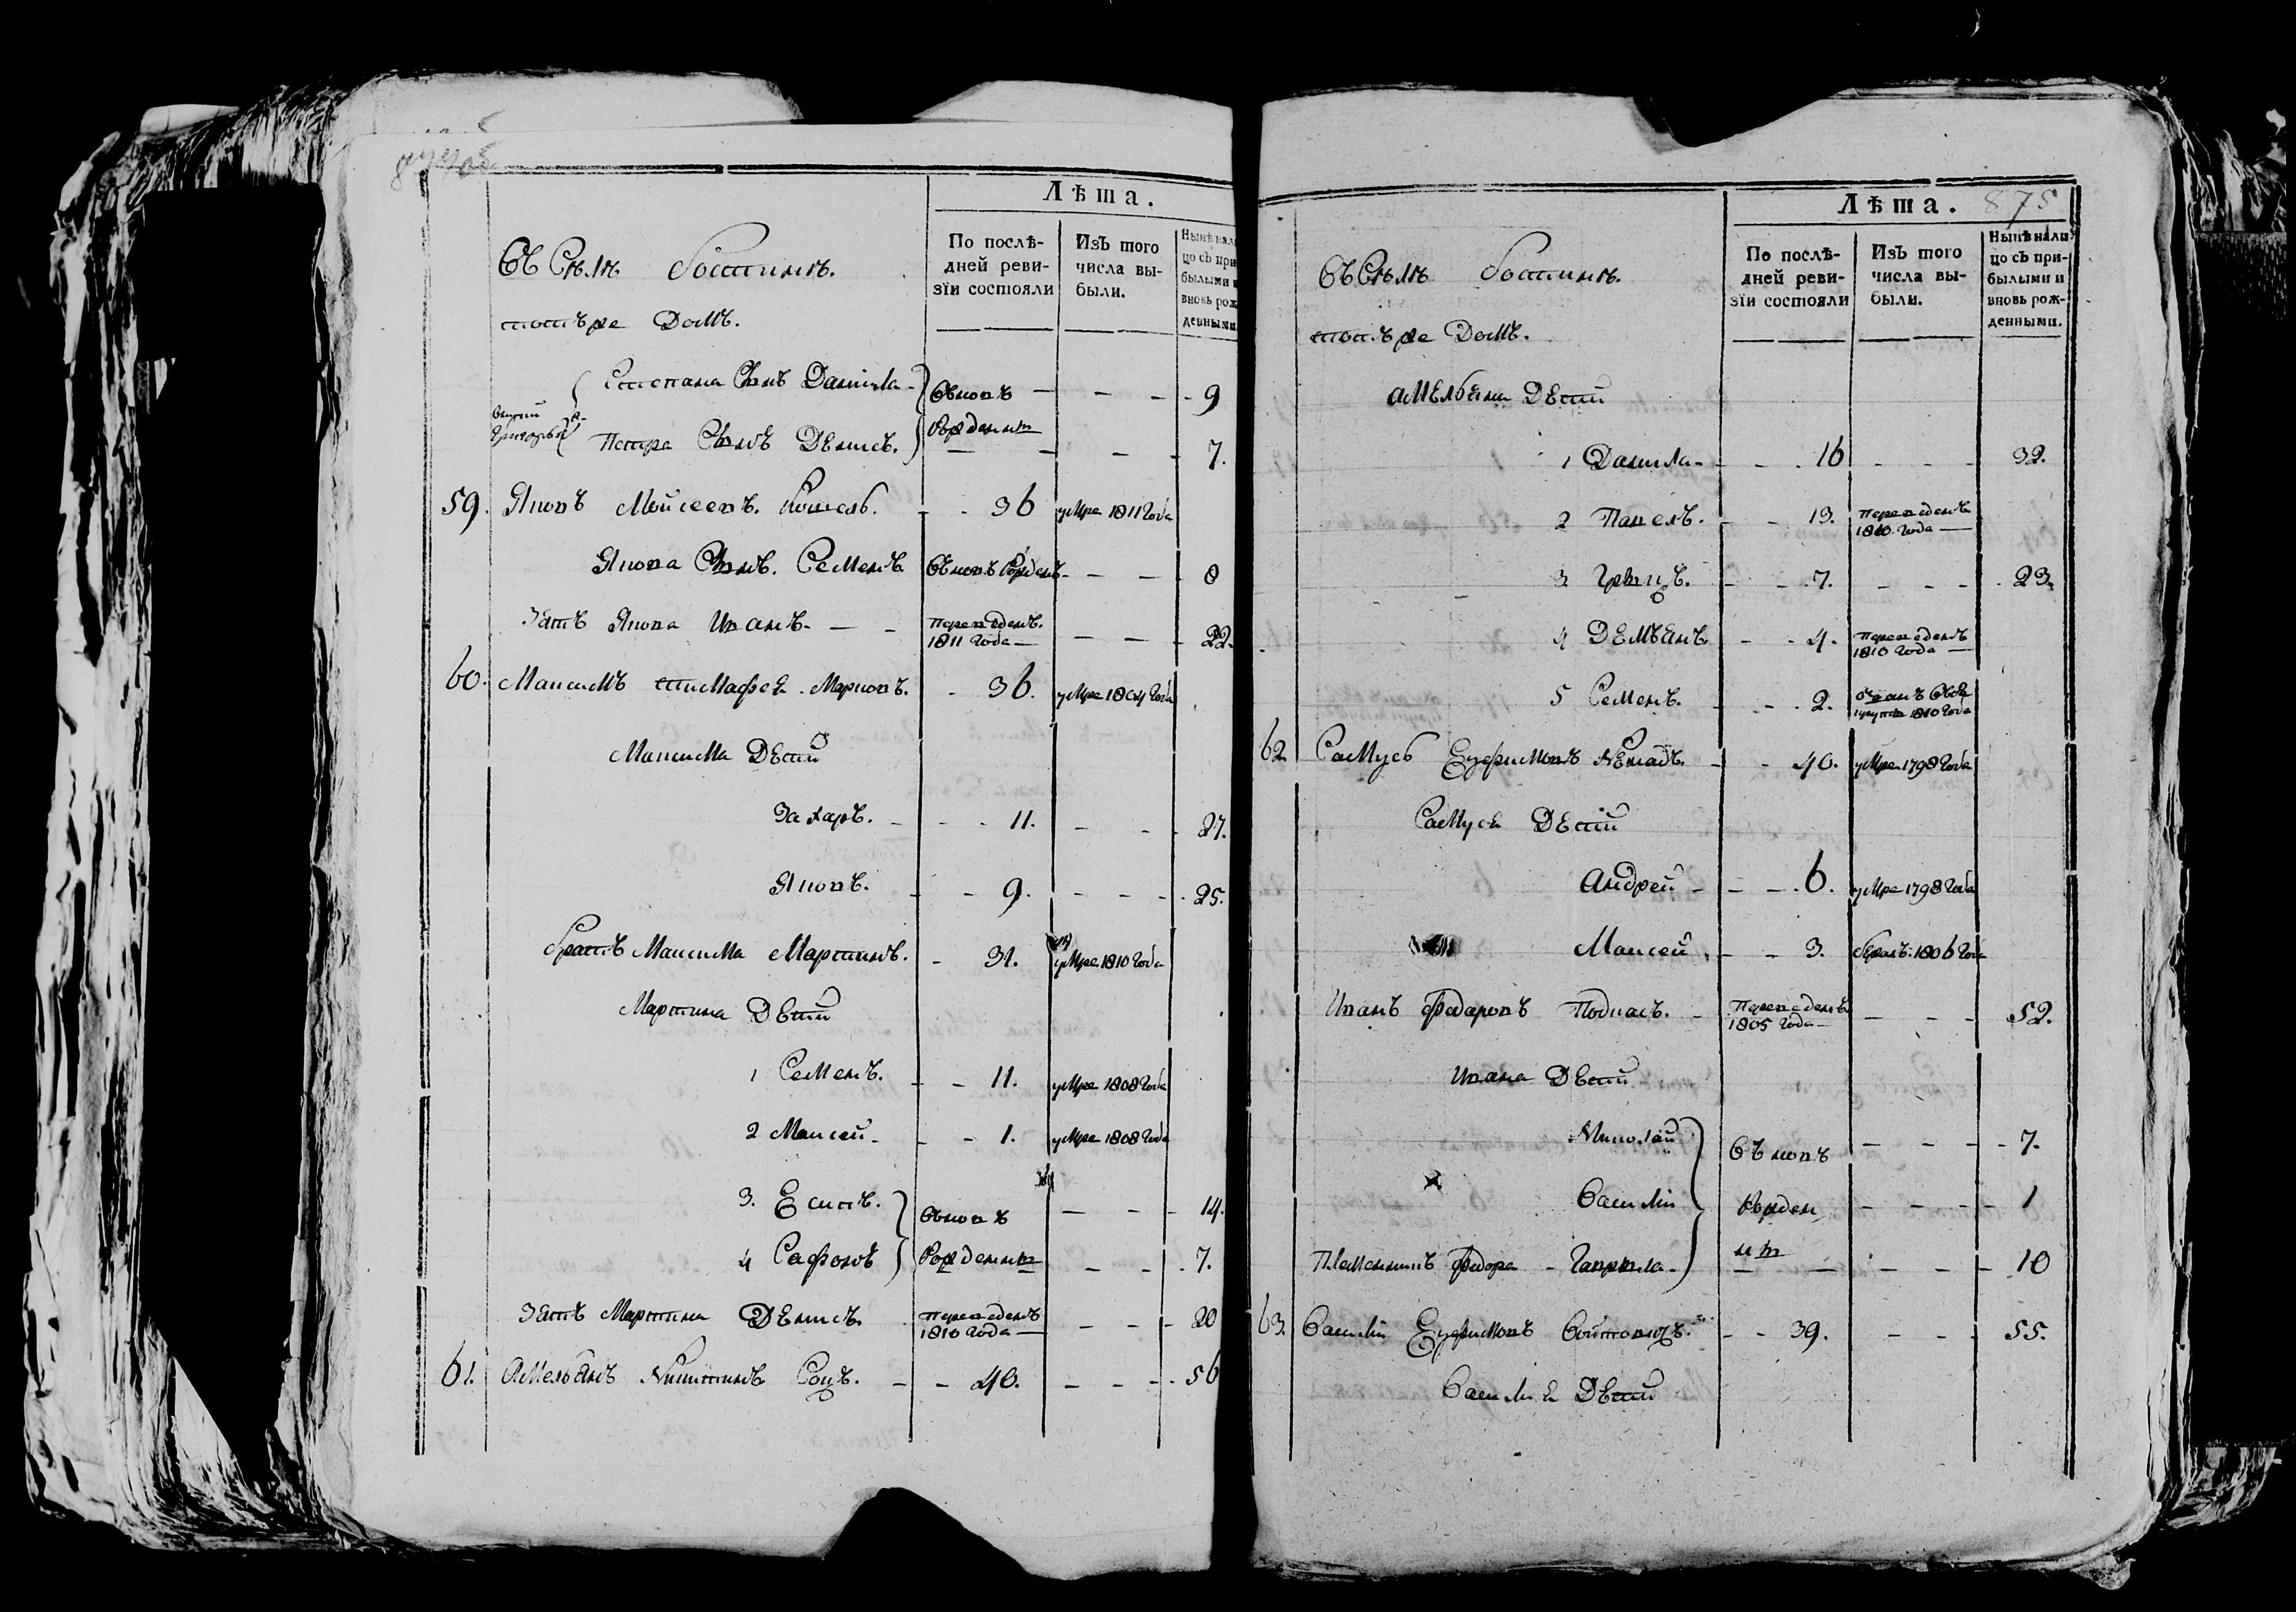 Лѣта.
По послѣ-
дней реви-
зїи состояли
Изъ того
числа вы-
были.
Нынѣ нали
цо съ при
былыми и
вновь рож
денными
Въ Селѣ
тотъ же Домъ.
Степана Сынъ Данила - 9
Внуки Григорья
Петра Сынъ Денисъ. 7.
Вновь
Рожденны
59. Яковъ Мойсеевъ. - - 36 умре 1811 Года
Якова Сынъ. Семенъ Вновь Рожденъ - - - 8
Зять Якова Иванъ. - - Переведенъ. 1811 Года - - - - 22.
60. Максимъ Марковъ. - 36. умре 1804 Года
Максима Дети
Захаръ. - - - 11. - - - 27.
Яковъ. - - 9. - - - 25.
братъ Максима Мартинъ. - 31. умре 1810 Года
Мартина Дети
1 Семенъ. - - 11. умре 1808 Года
2 Моисей - - - 1. умре 1808 Года
3. Есипъ. - - - 14.
4 Сафонъ - - - 7.
Вновь
Рожденны
Зять Мартина Денисъ. Переведенъ 1810 Года - - - 20
61. Амельянъ Никитинъ - - 40. - - - 56
875
Лѣта.
По послѣ-
дней реви-
зїи состояли
Изъ того
числа вы-
были.
Нынѣ нали
цо съ при-
былыми и
вновь рож-
денными.
Въ Селѣ
тотъ же Домъ.
Амельяна Дети
1 Данила - - - 16 - - - 32.
2 Павелъ. - - 13. Переведенъ 1810 Года
3 Грицъ. - - 7. - - - 23.
4 Демъянъ - - 4. Переведенъ 1810 Года
5 Семенъ. - - 2. отданъ рекруты 1810 Года
62 Самусь Ефимовъ - - 40. умре 1798 Года
Самуся Дети
Андрей - - - 6. умре 1798 Года
Моисей. - - 3. бѣжалъ. 1806 Года
Иванъ Федоровъ - Переведенъ 1805 Года - - - 52.
Ивана Дети
Николай - - - 7.
Василій - - - 1
Племянникъ Федора - Гаврила - - - 10
Въновь
Рожден
ны
63. Василій Ефимовъ - - 39. - - - 55.
Василія Дети